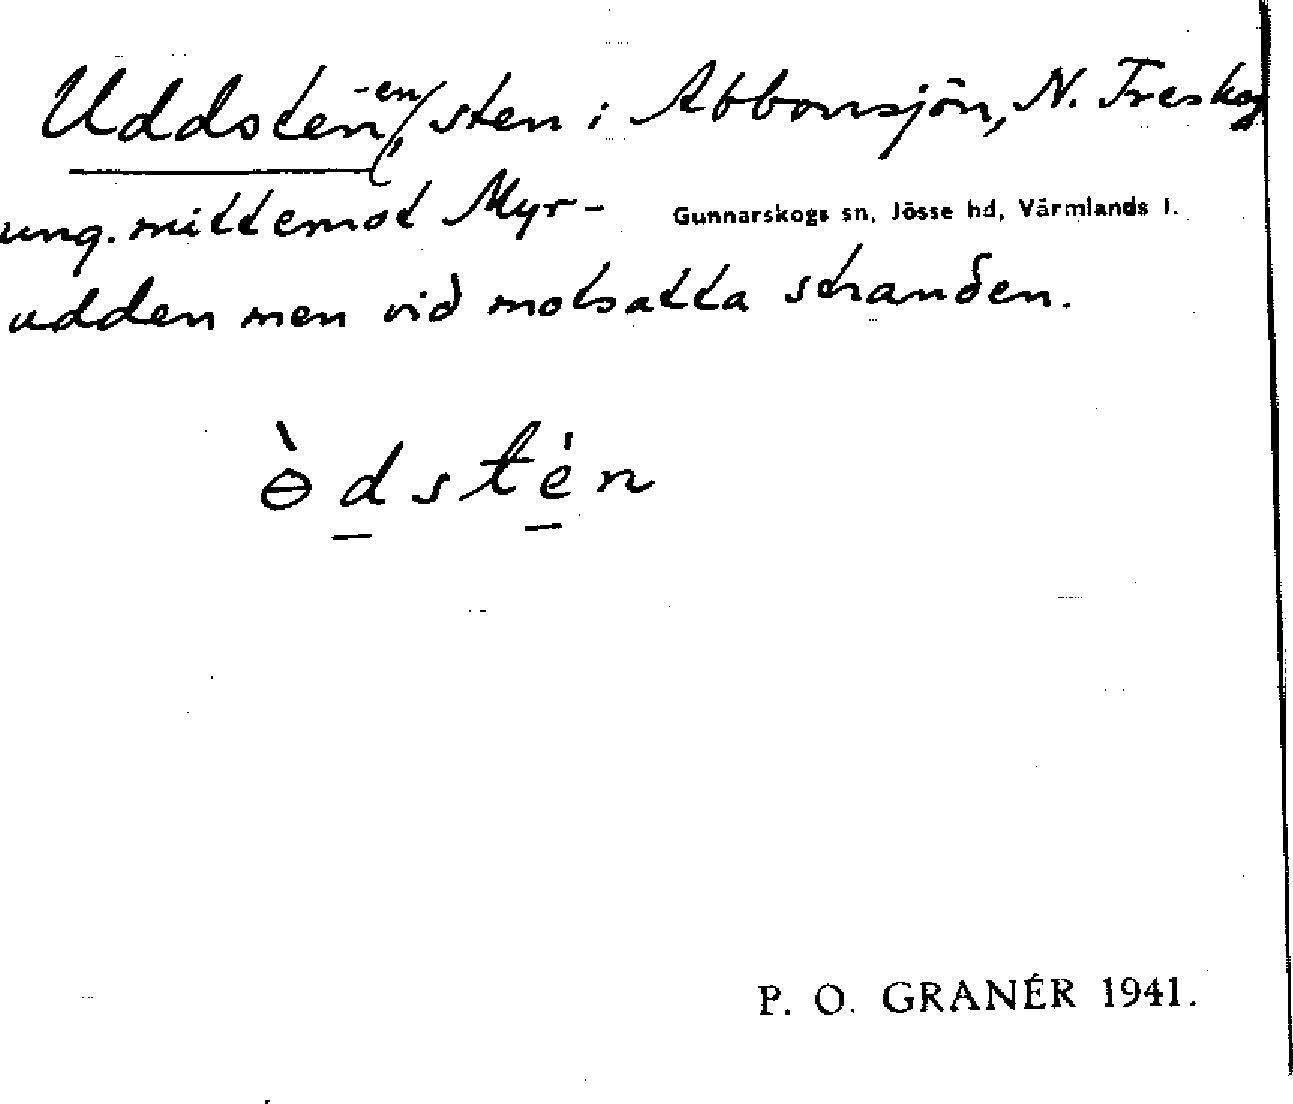 Uddsten, -en, sten i Abbonsjön, N. Treskog
ung. mittemot Myr-
Gunnarskogs sn, Jösse hd, Värmlands l.
udden men vid motsatta stranden.
ɵ̀dstén
P. O. GRANÉR 1941.